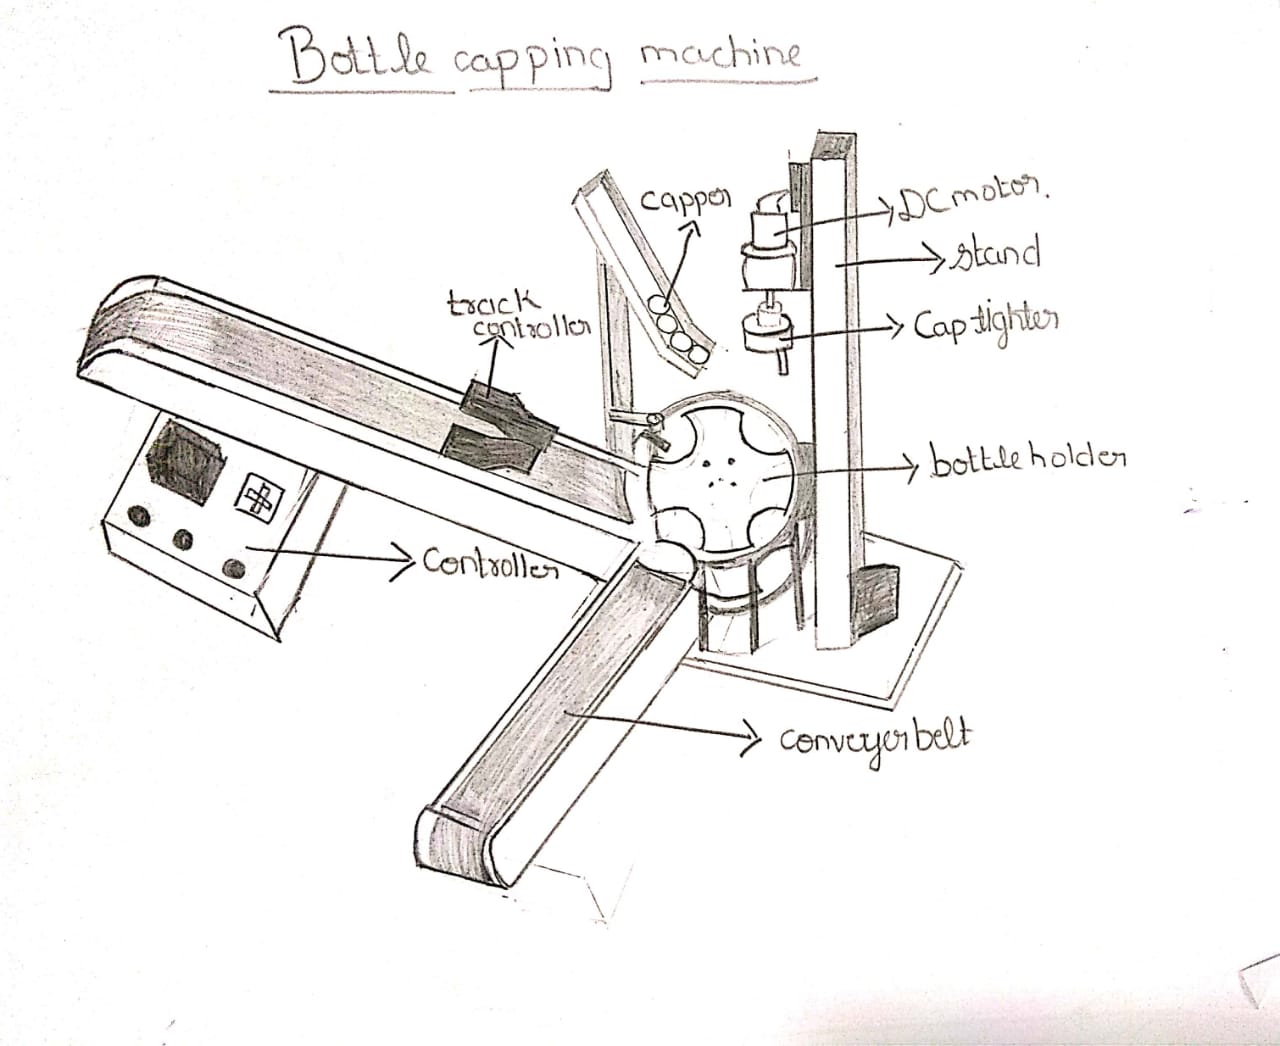 Bottle capping machine
capper
DC motor.
stand
track
controller
Cap tighter
bottle holder
Controller
conveyer belt